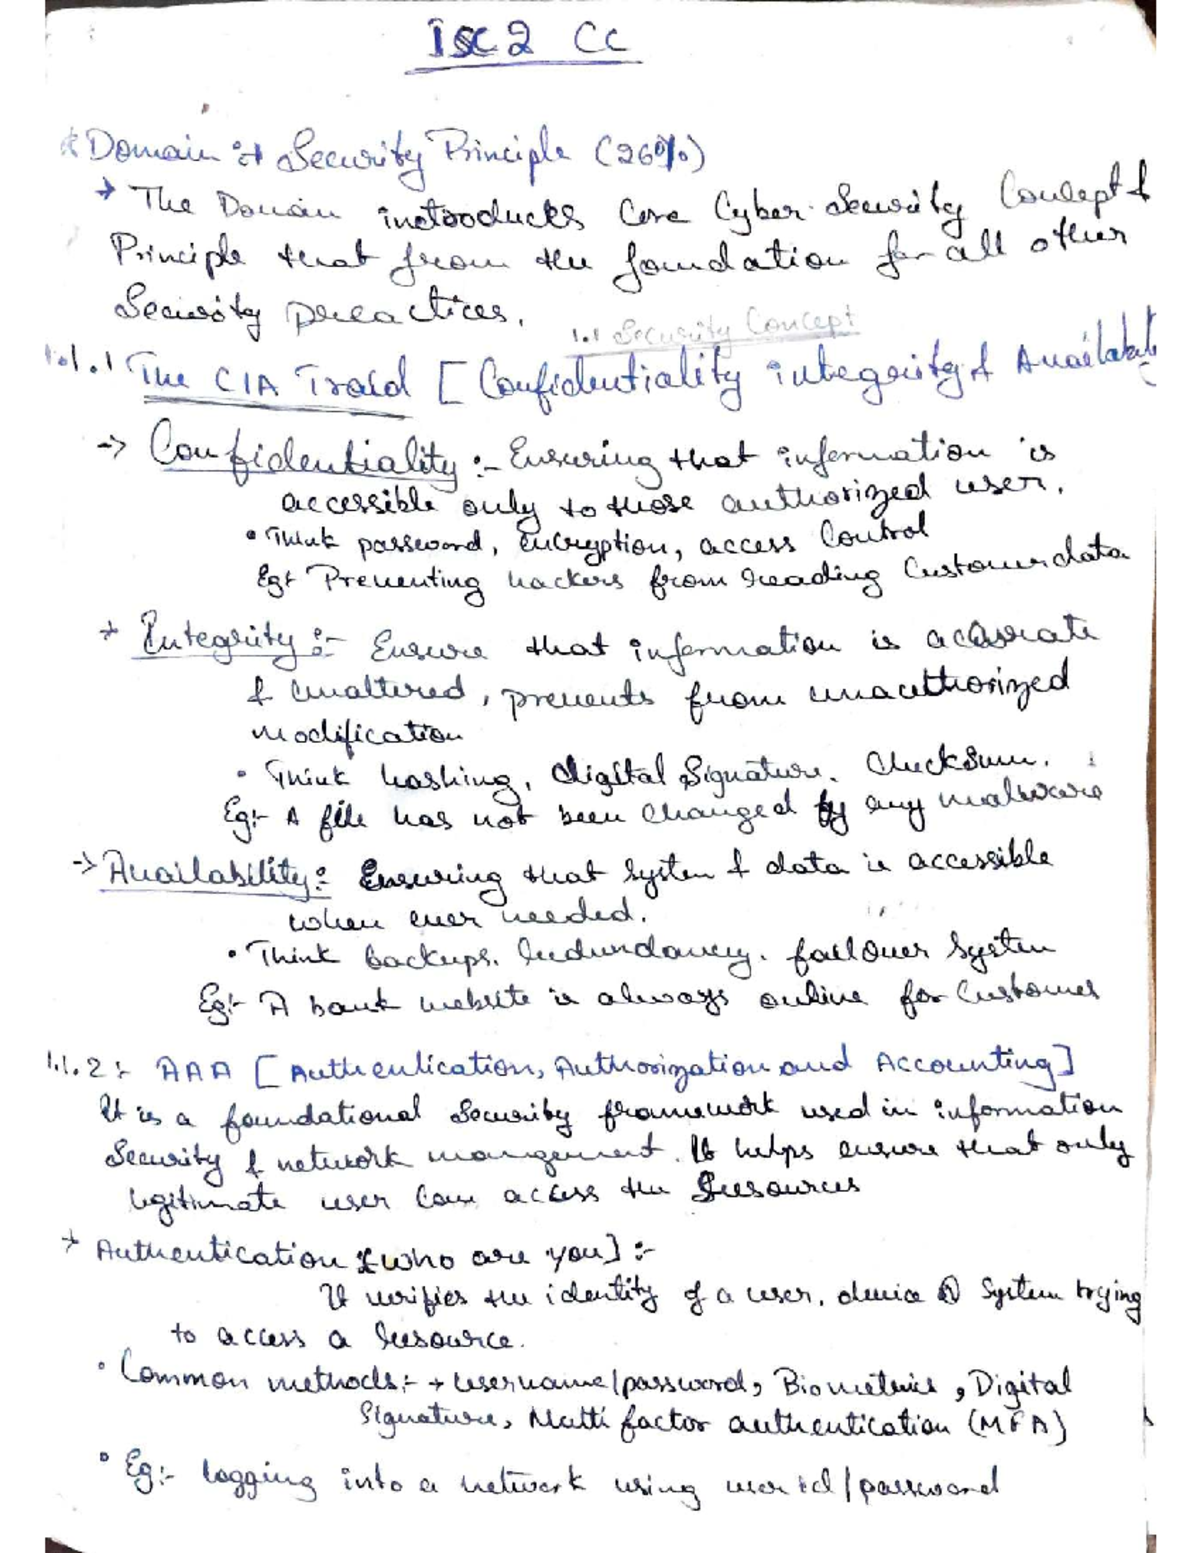 ISC2 CC
* Domain :→ Security Principle (26%)
→ The Domain instroducks Core Cyber-Security Concept &
Principle that from the foundation for all other
Security preactices.
1.1 Security Concept
1.1.1 The CIA Traid [Confidentiality integrity & Availabilit
→ Confidentiality :- Ensuring that information is
accessible only to those authorized user.
• Think password, encryption, access Control
Eg:- Preventing hackers from reading Customer data
→ Integrity :- Ensure that information is accurate
& unaltered, prevents from unauthorized
modification
• Think hashing, digital Signature. Checksum.
Eg:- A file has not been changed by any malware
→ Availability :- Ensuring that System & data is accessible
when ever needed.
• Think backups. Redundancy. failover System
Eg:- A bank website is always online for Customer
1.1.2 :- AAA [Authentication, Authorization and Accounting]
It is a foundational Security framework used in information
Security & network management. It helps ensure that only
legitimate user can access the Resources
→ Authentication [who are you] :-
It verifies the identity of a user, device or System trying
to access a resource.
• Common methods:- → username/password, Biometric, Digital
Signature, Multi factor authentication (MFA)
• Eg:- logging into a network using user id/password